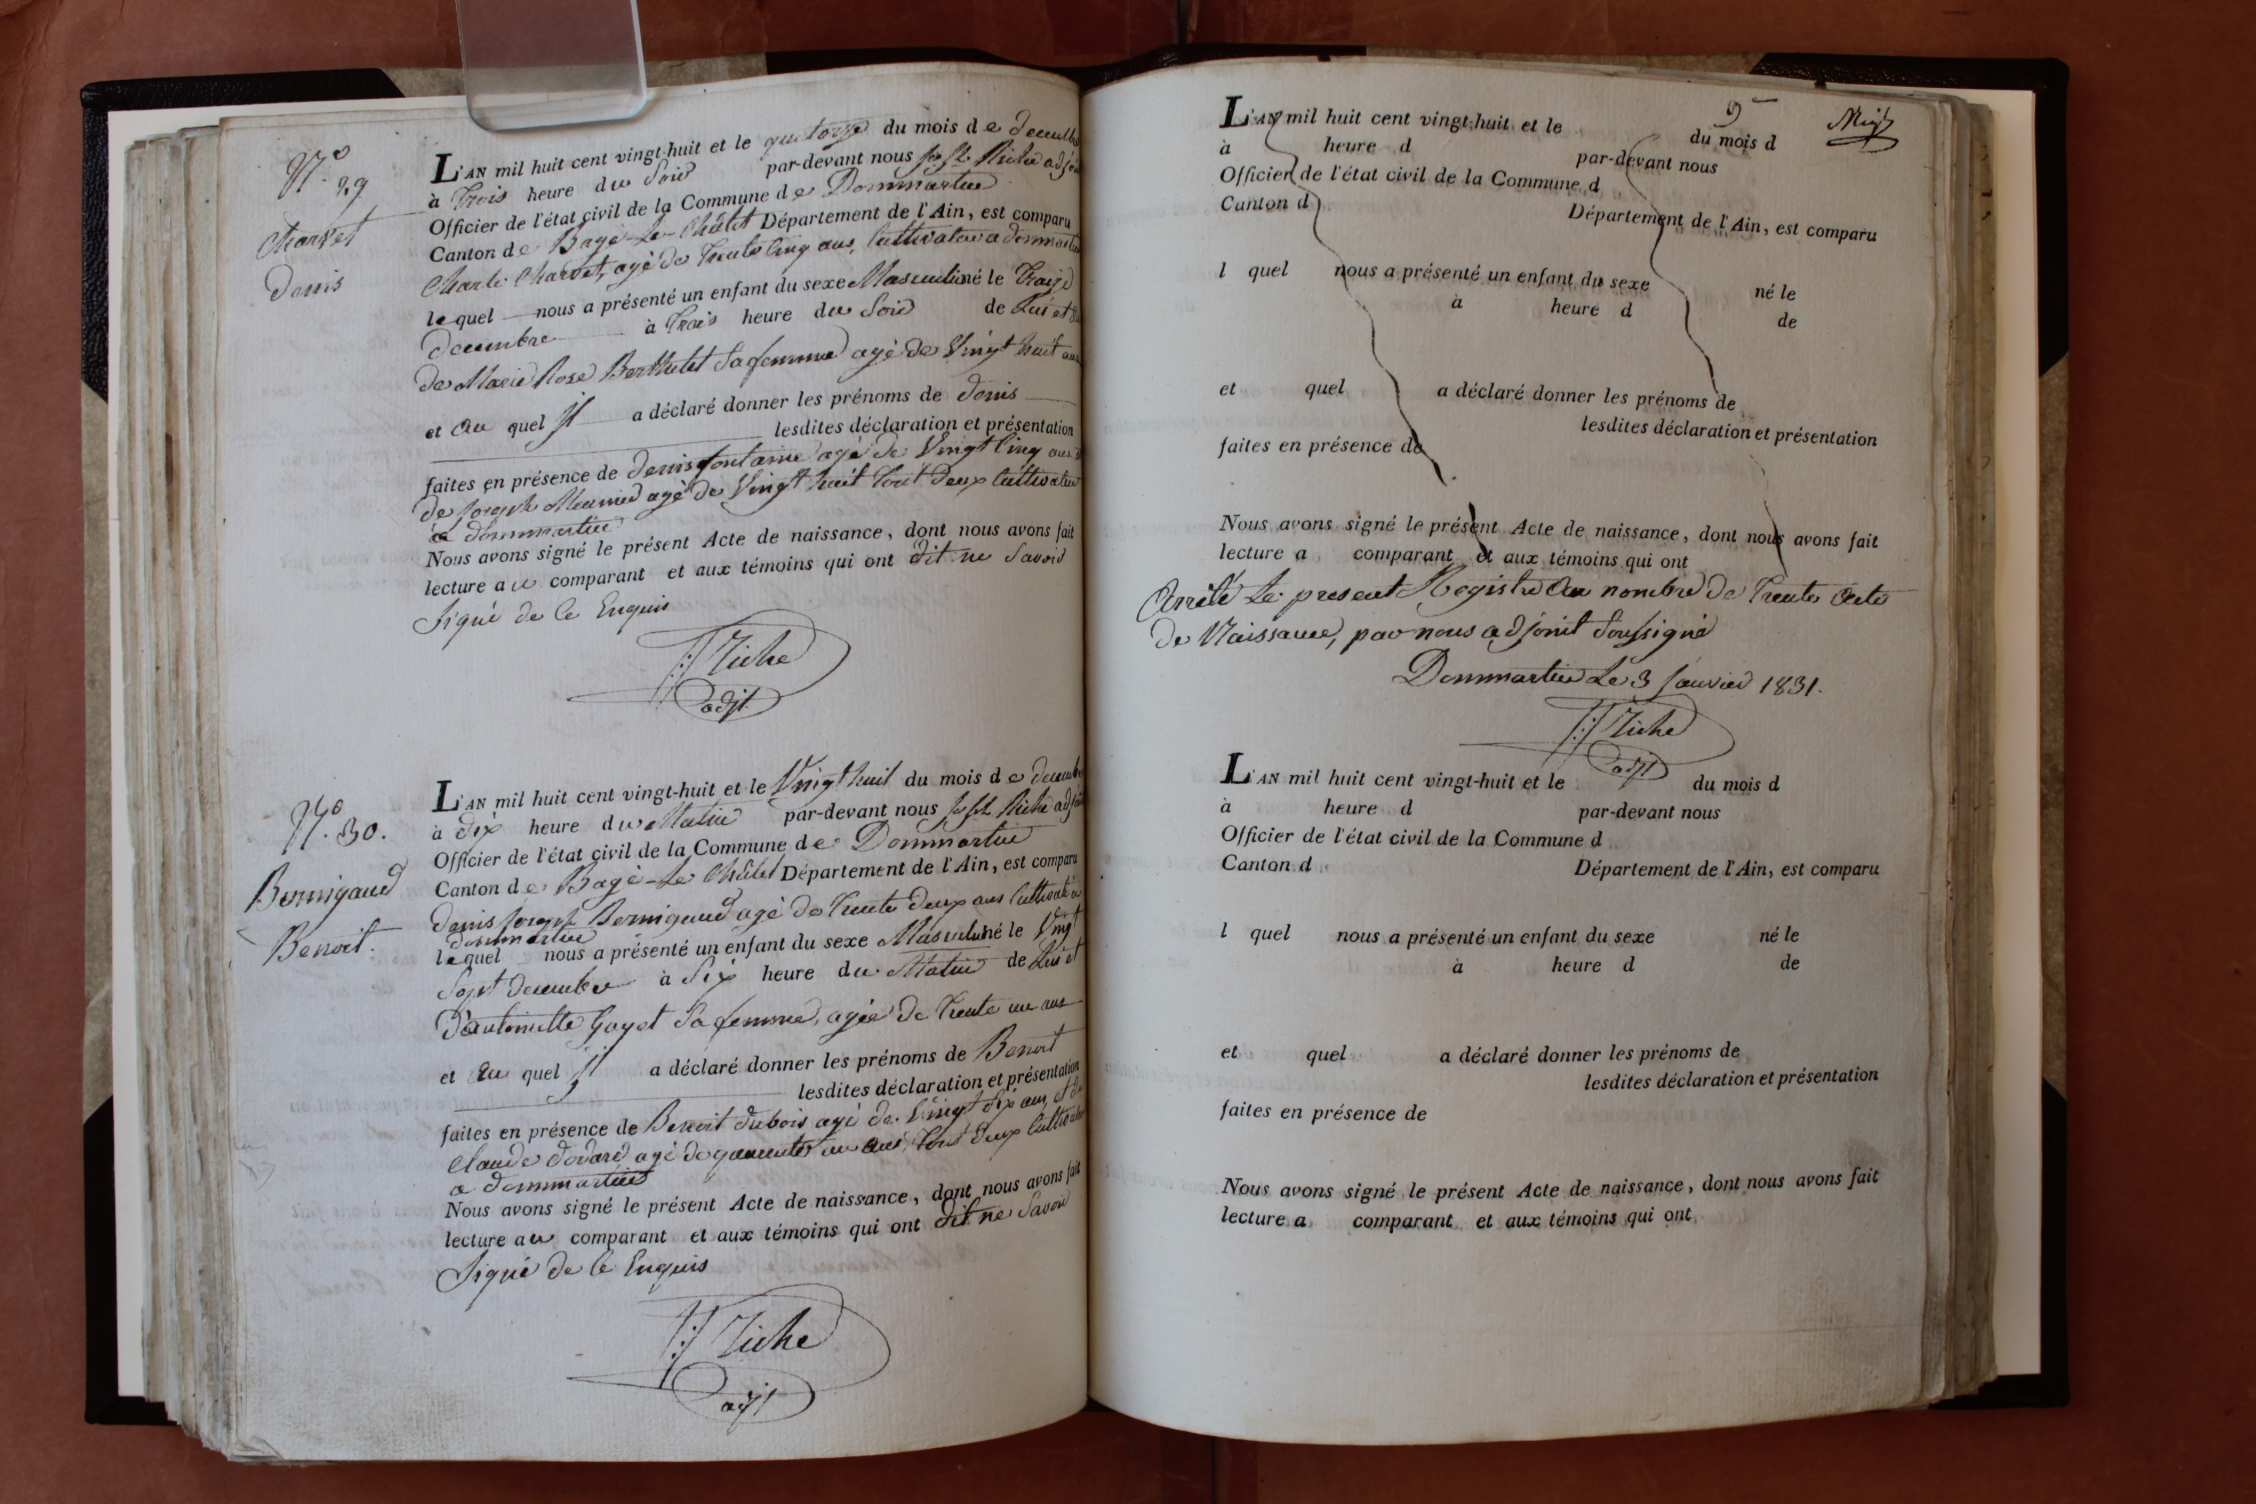 N.o 29
Charvet
Denis
L'AN mil huit cent vingt-huit et le quatorze du mois de decembre
à Trois heure du Soir par-devant nous Jo.ph Riche adjoint
Officier de l'état civil de la Commune de Dommartin
Canton de Bagé-Le-Châtel Département de l'Ain, est comparu
Charle Charvet, agé de Trente Cinq ans, Cultivateur a dommartin
lequel nous a présenté un enfant du sexe Masculin né le Traize
decembre à Trois heure du Soir de Lui et
de Marie Rose Berthelet Sa femme agé de Vingt huit ans
et au quel il a déclaré donner les prénoms de denis
lesdites déclaration et présentation
faites en présence de denis fontaine agé de Vingt Cinq ans
de Joseph Meunier agé de Vingt huit tout deux Cultivateur
à dommartin
Nous avons signé le présent Acte de naissance, dont nous avons fait
lecture au comparant et aux témoins qui ont dit ne Savoir
Signé de Ce Enquis
Riche
adjt
N.o 30.
Bernigaud
Benoit.
L'AN mil huit cent vingt-huit et le Vingt huit du mois de decembre
à dix heure du Matin par-devant nous Jo.ph Riche adjoint
Officier de l'état civil de la Commune de Dommartin
Canton de Bagé-Le Châtel Département de l'Ain, est comparu
denis Joseph Bernigaud agé de Trente deux ans Cultivat. à
dommartin
lequel nous a présenté un enfant du sexe Masculin né le Vingt
Sept decembre à Six heure du Matin de Lui et
d'antoinette Goyet Sa femme, agée de Trente un ans
et au quel il a déclaré donner les prénoms de Benoit
lesdites déclaration et présentation
faites en présence de Benoit dubois agé de Vingt Six ans, et de
Claude dodard agé de quarante un ans, tout deux Cultivateur
a dommartin
Nous avons signé le présent Acte de naissance, dont nous avons fait
lecture au comparant et aux témoins qui ont dit ne Savoir
Signé de Ce Enquis
Riche
adjt
9
L'AN mil huit cent vingt-huit et le du mois d
à heure d par-devant nous
Officier de l'état civil de la Commune d
Canton d Département de l'Ain, est comparu
l quel nous a présenté un enfant du sexe né le
à heure d de
et quel a déclaré donner les prénoms de
lesdites déclaration et présentation
faites en présence de
Nous avons signé le présent Acte de naissance, dont nous avons fait
lecture a comparant et aux témoins qui ont
Arrêté Le present Registre au nombre de Trente acte
de Naissance, par nous adjoint Soussigné
Dommartin Le 3 Janvier 1831.
Riche
adjt
L'AN mil huit cent vingt-huit et le du mois d
à heure d par-devant nous
Officier de l'état civil de la Commune d
Canton d Département de l'Ain, est comparu
l quel nous a présenté un enfant du sexe né le
à heure d de
et quel a déclaré donner les prénoms de
lesdites déclaration et présentation
faites en présence de
Nous avons signé le présent Acte de naissance, dont nous avons fait
lecture a comparant et aux témoins qui ont